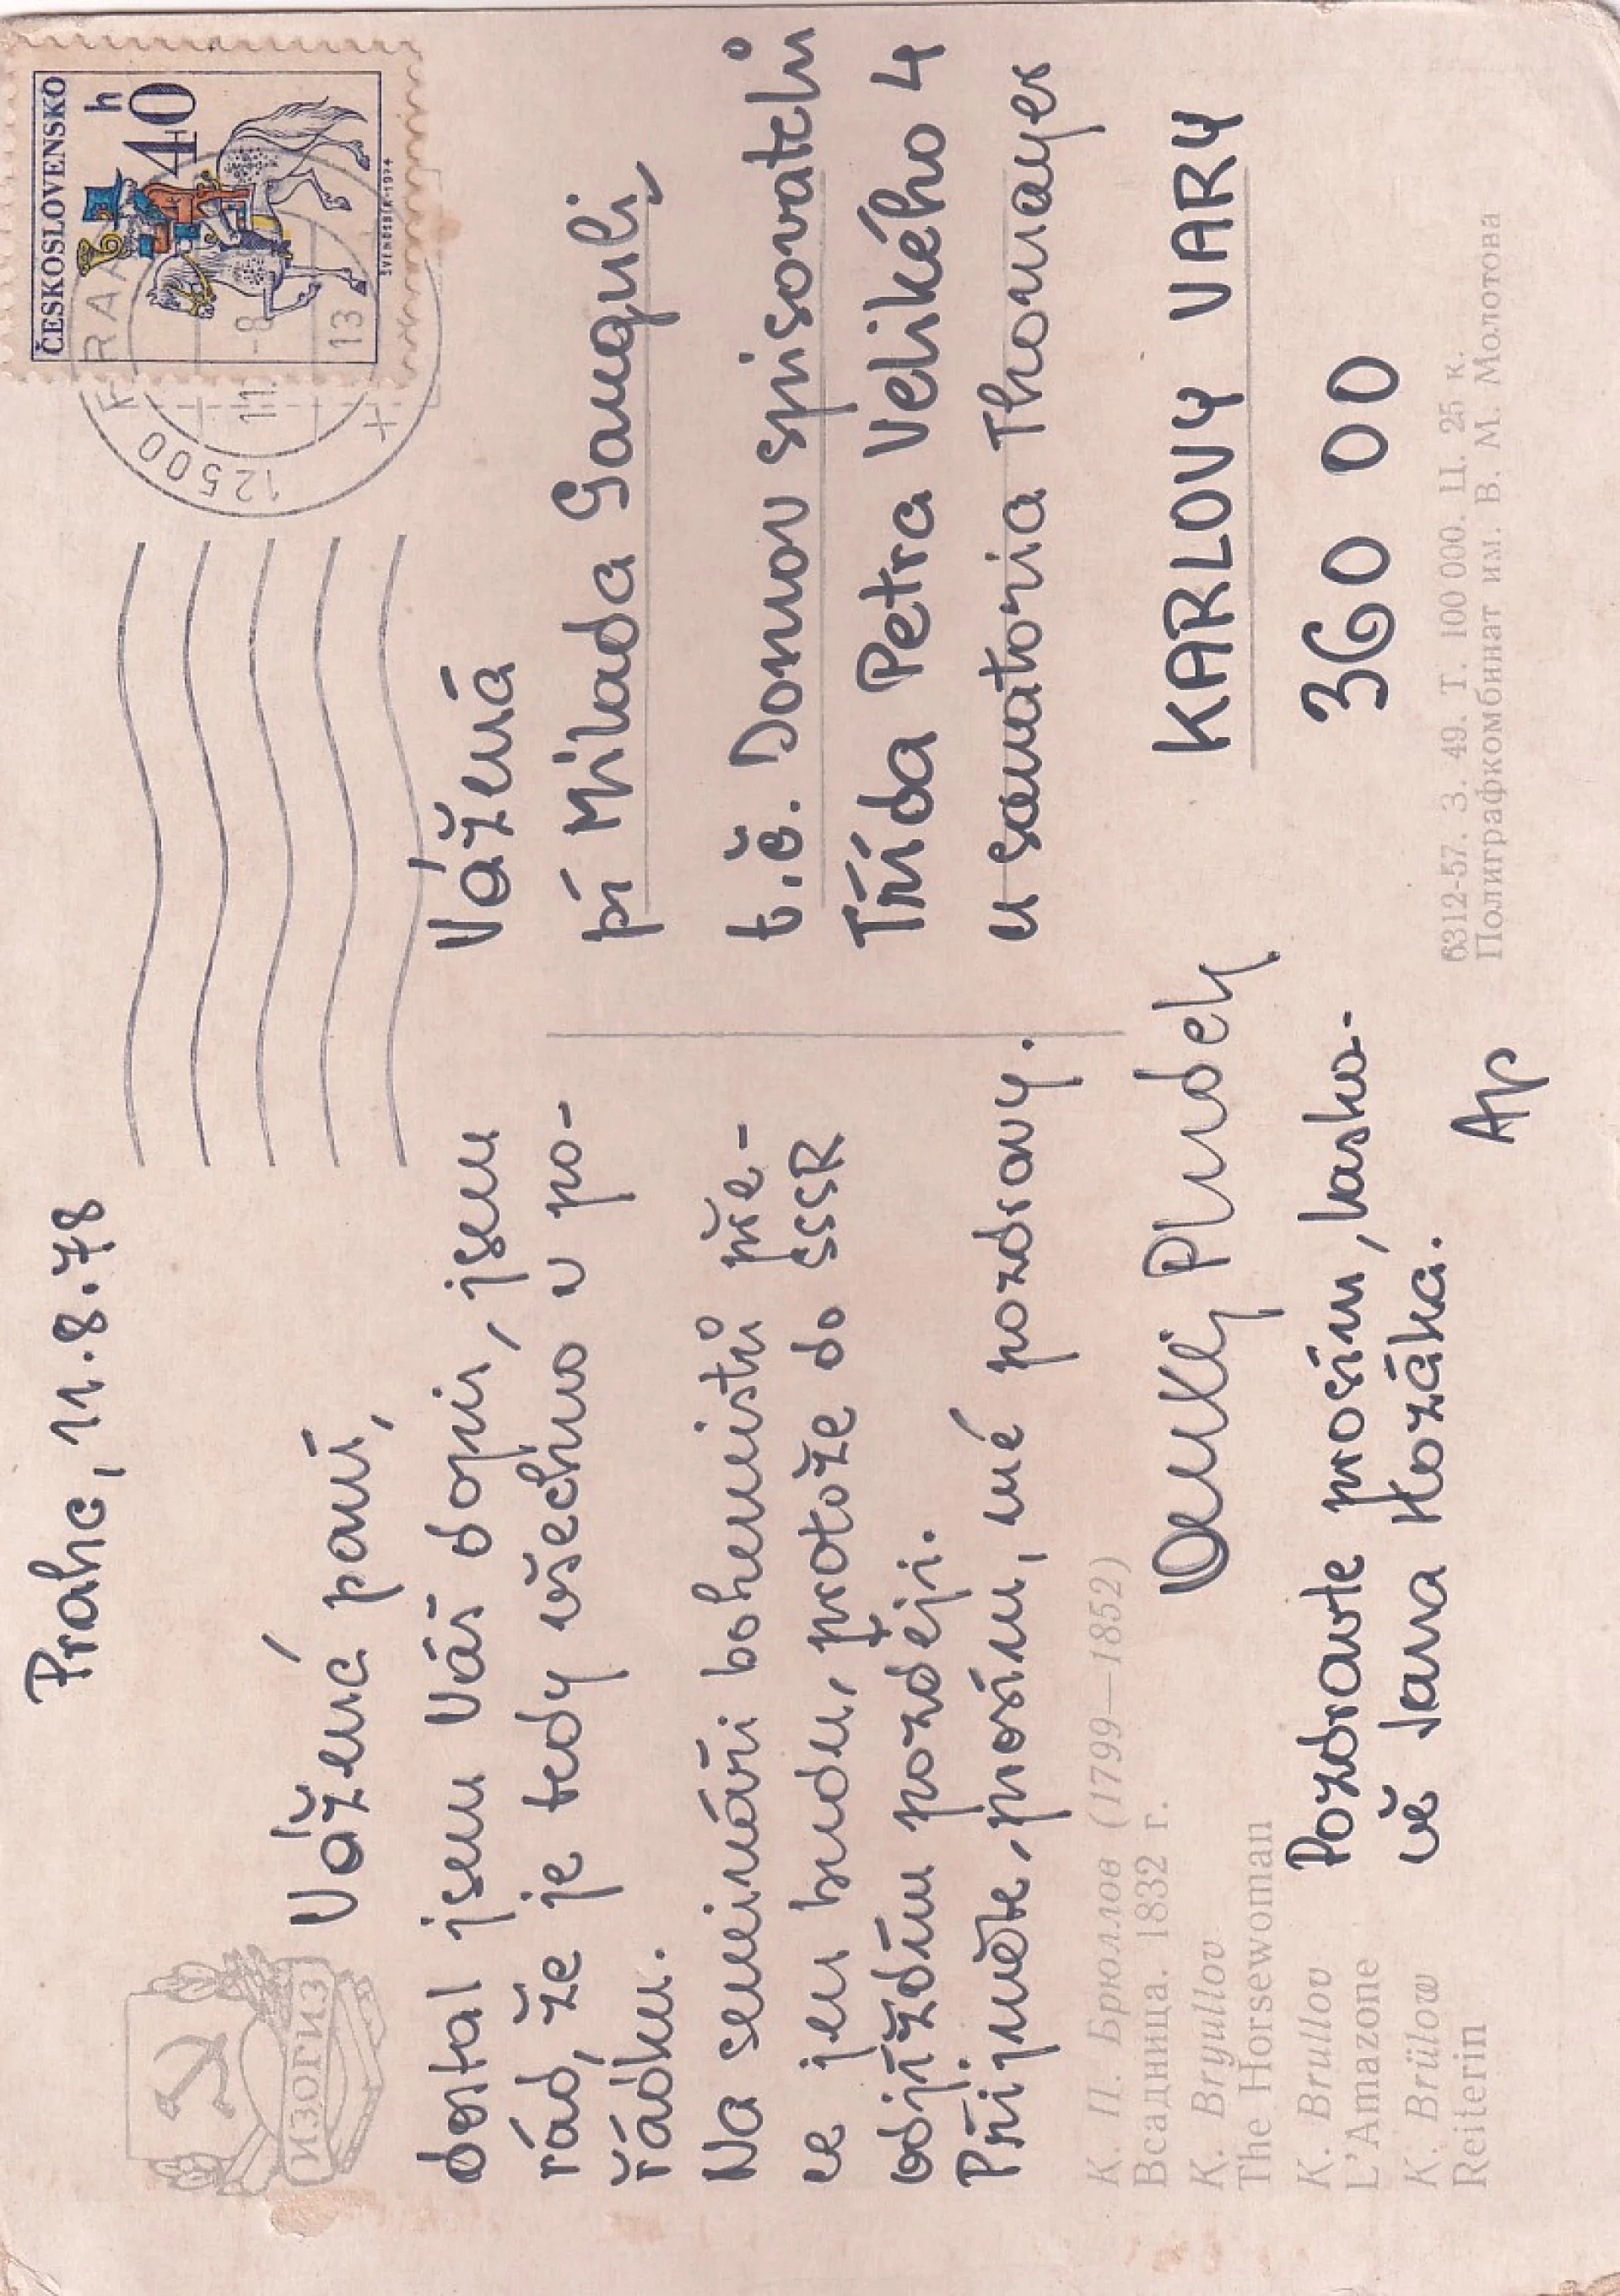 Praha, 11.8.78
Vážená paní,
dostal jsem Váš dopis, jsem
rád, že je tedy všechno v po-
řádku.
Na semináři bohemistů pře-
ce jen budu, protože do SSSR
odjíždím později.
Přijměte, prosím, mé pozdravy.
Pludek
Pozdravte prosím, laska-
vě Jana Kozáka.
Ap
ČESKOSLOVENSKO
40 h
ŠVENGSBÍR-1974
12500 PRAHA
11.-8
13
Vážená
pí Milada Ganguli,
t.č. Domov spisovatelů
Třída Petra Velikého 4
u sanatoria Thomayer
KARLOVY VARY
360 00
ИЗОГИЗ
К. П. Брюллов (1799—1852)
Всадница. 1832 г.
K. Bryullov
The Horsewoman
K. Brullov
L'Amazone
K. Brülow
Reiterin
6312-57. З. 49. Т. 100 000. Ц. 25 к.
Полиграфкомбинат им. В. М. Молотова